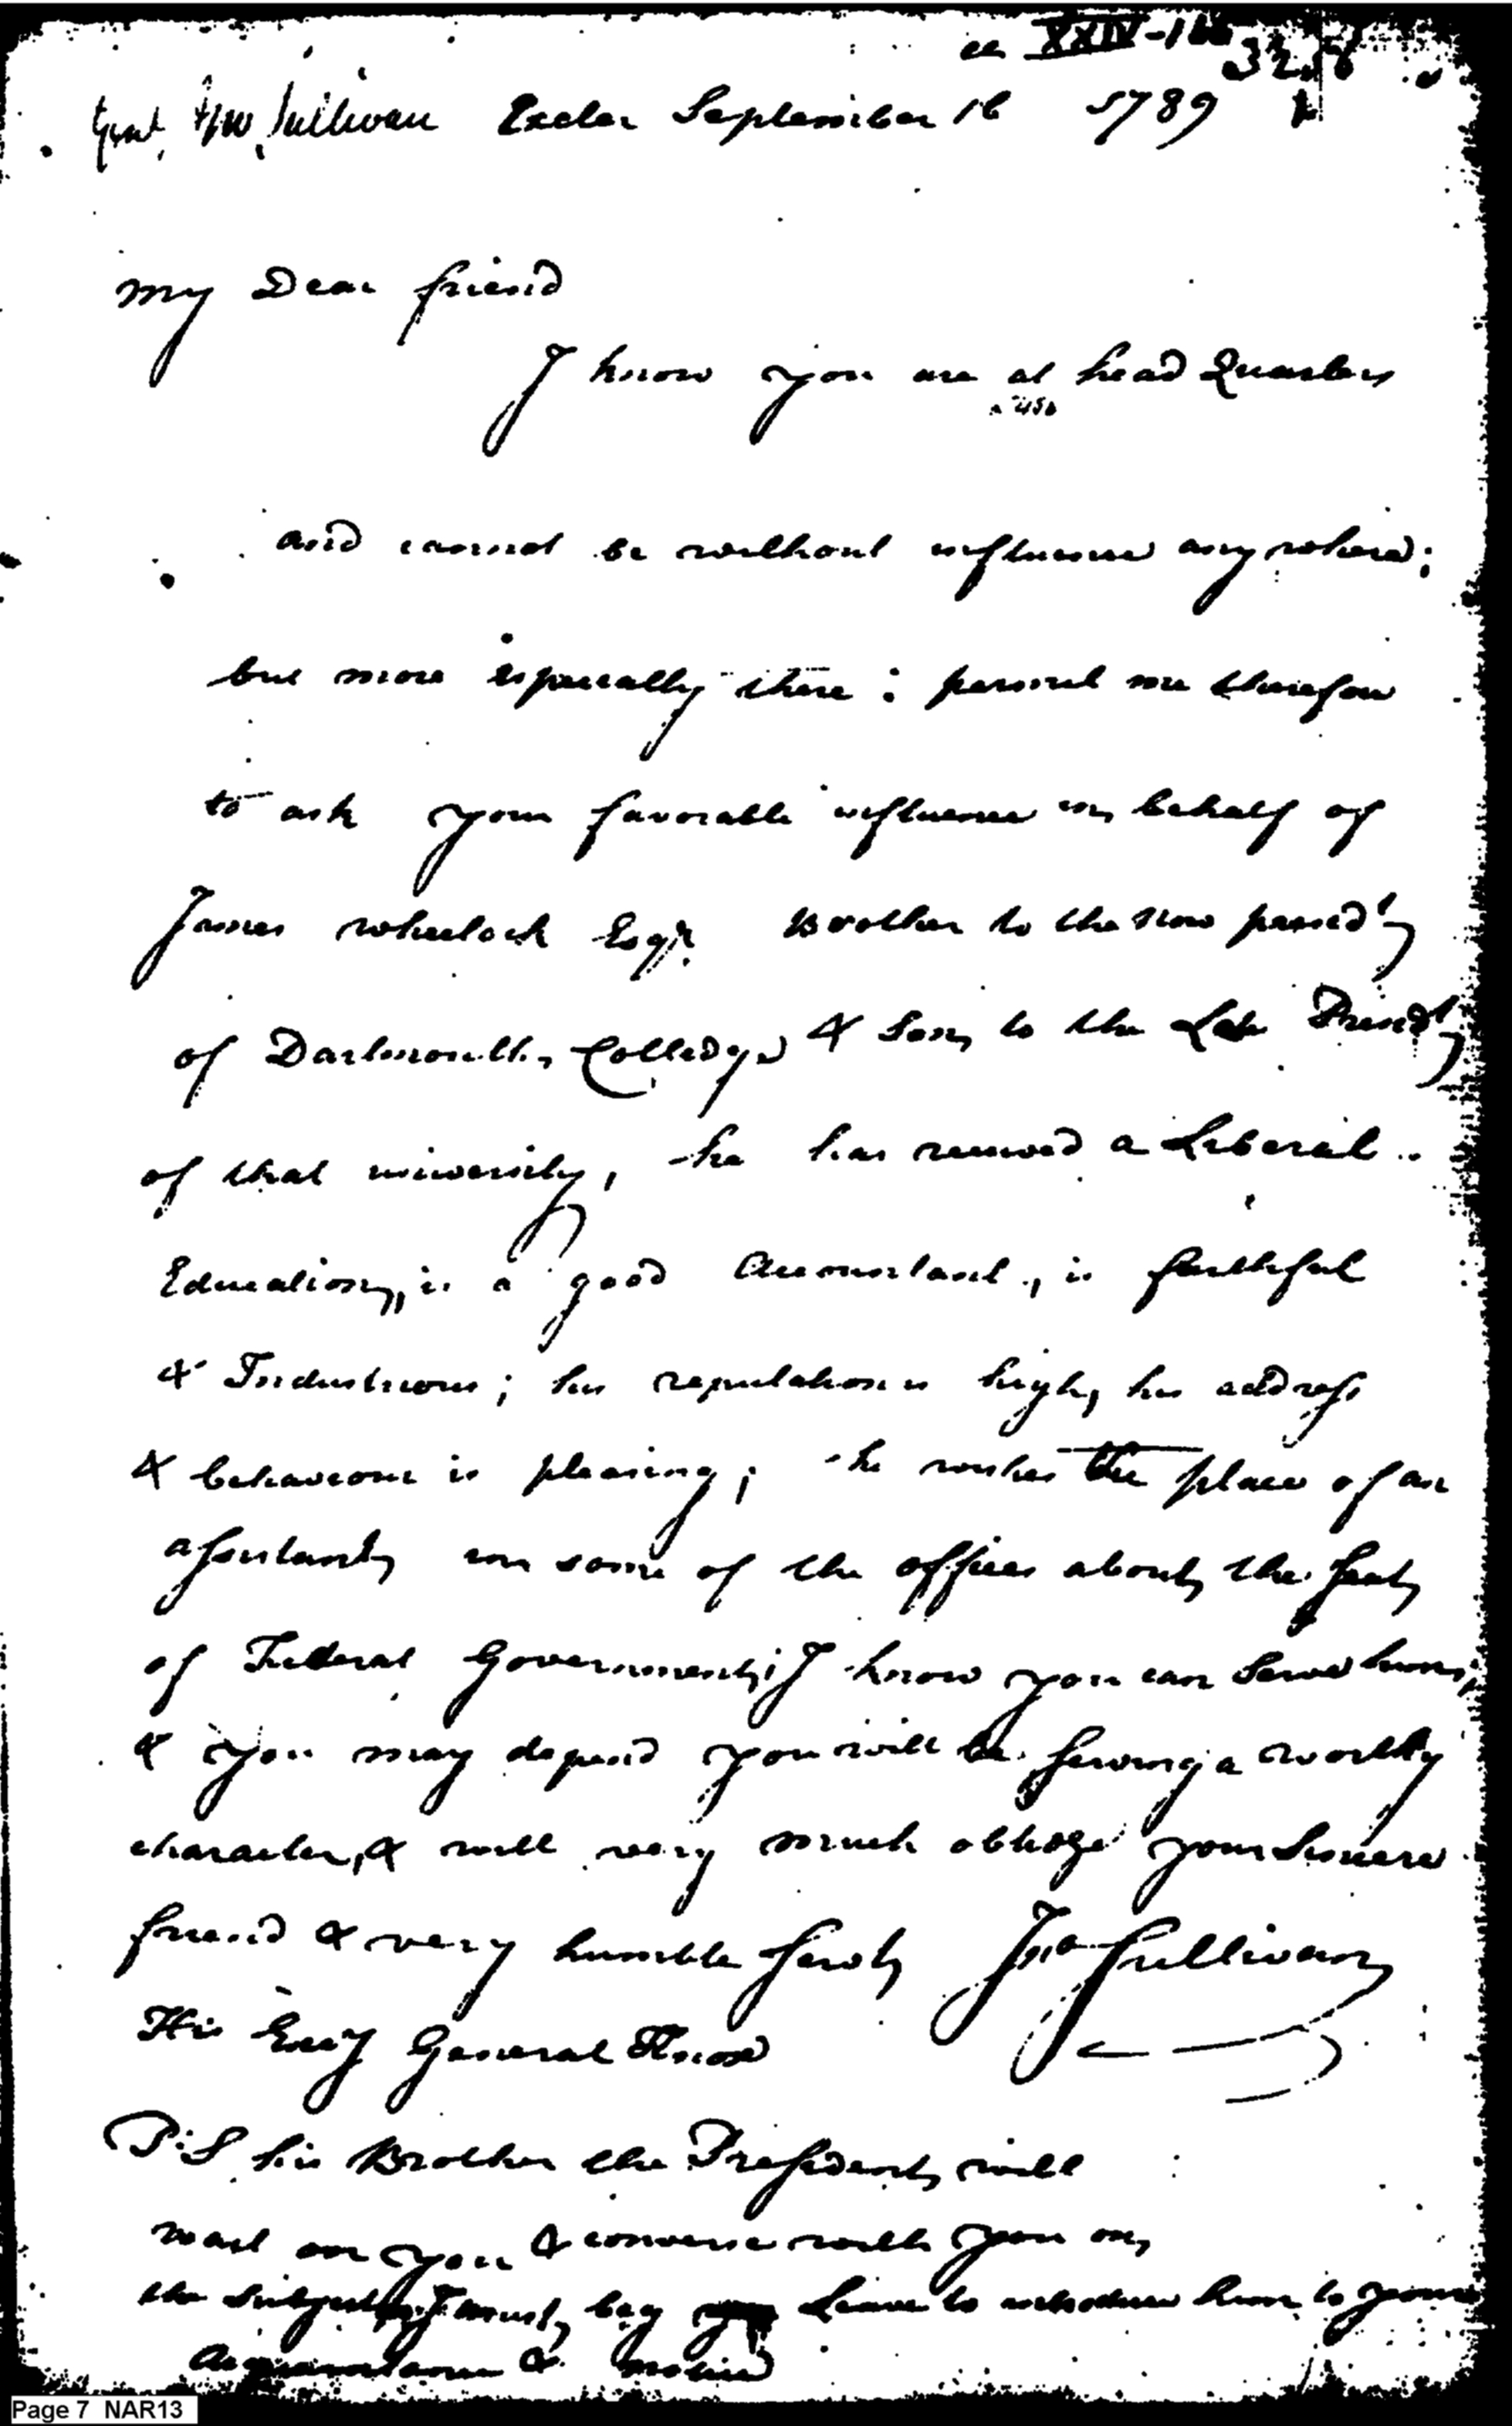 XXIV-166
Genl. Jno. Sullivan Exeter September 16 1789
My Dear friend
I know you are at head Quarters
and cannot be without influence any where;
but more especially there: permit me therefore
to ask your favorable influence in behalf of
James wheelock Esqr. Brother to the now presidt
of Dartmouth Colledge & Son to the Late Presidt
of that university, he has received a Liberal
Education, is a good Accountant, is faithful
& Industrious; his reputation is high, his address
& behaviour is pleasing; he wishes the place of an
assistant in some of the offices about the seat
of Federal Government; I know you can Serve him,
& you may depend you will be serving a worthy
character, & will very much oblidge your Sincere
friend & very humble servt Jno Sullivan
His Excy General Knox
P:S his Brother the President will
wait on you & converse with you on
the subject I must beg Leave to introduce him to your
Acquaintance & notice
Page 7 NAR13